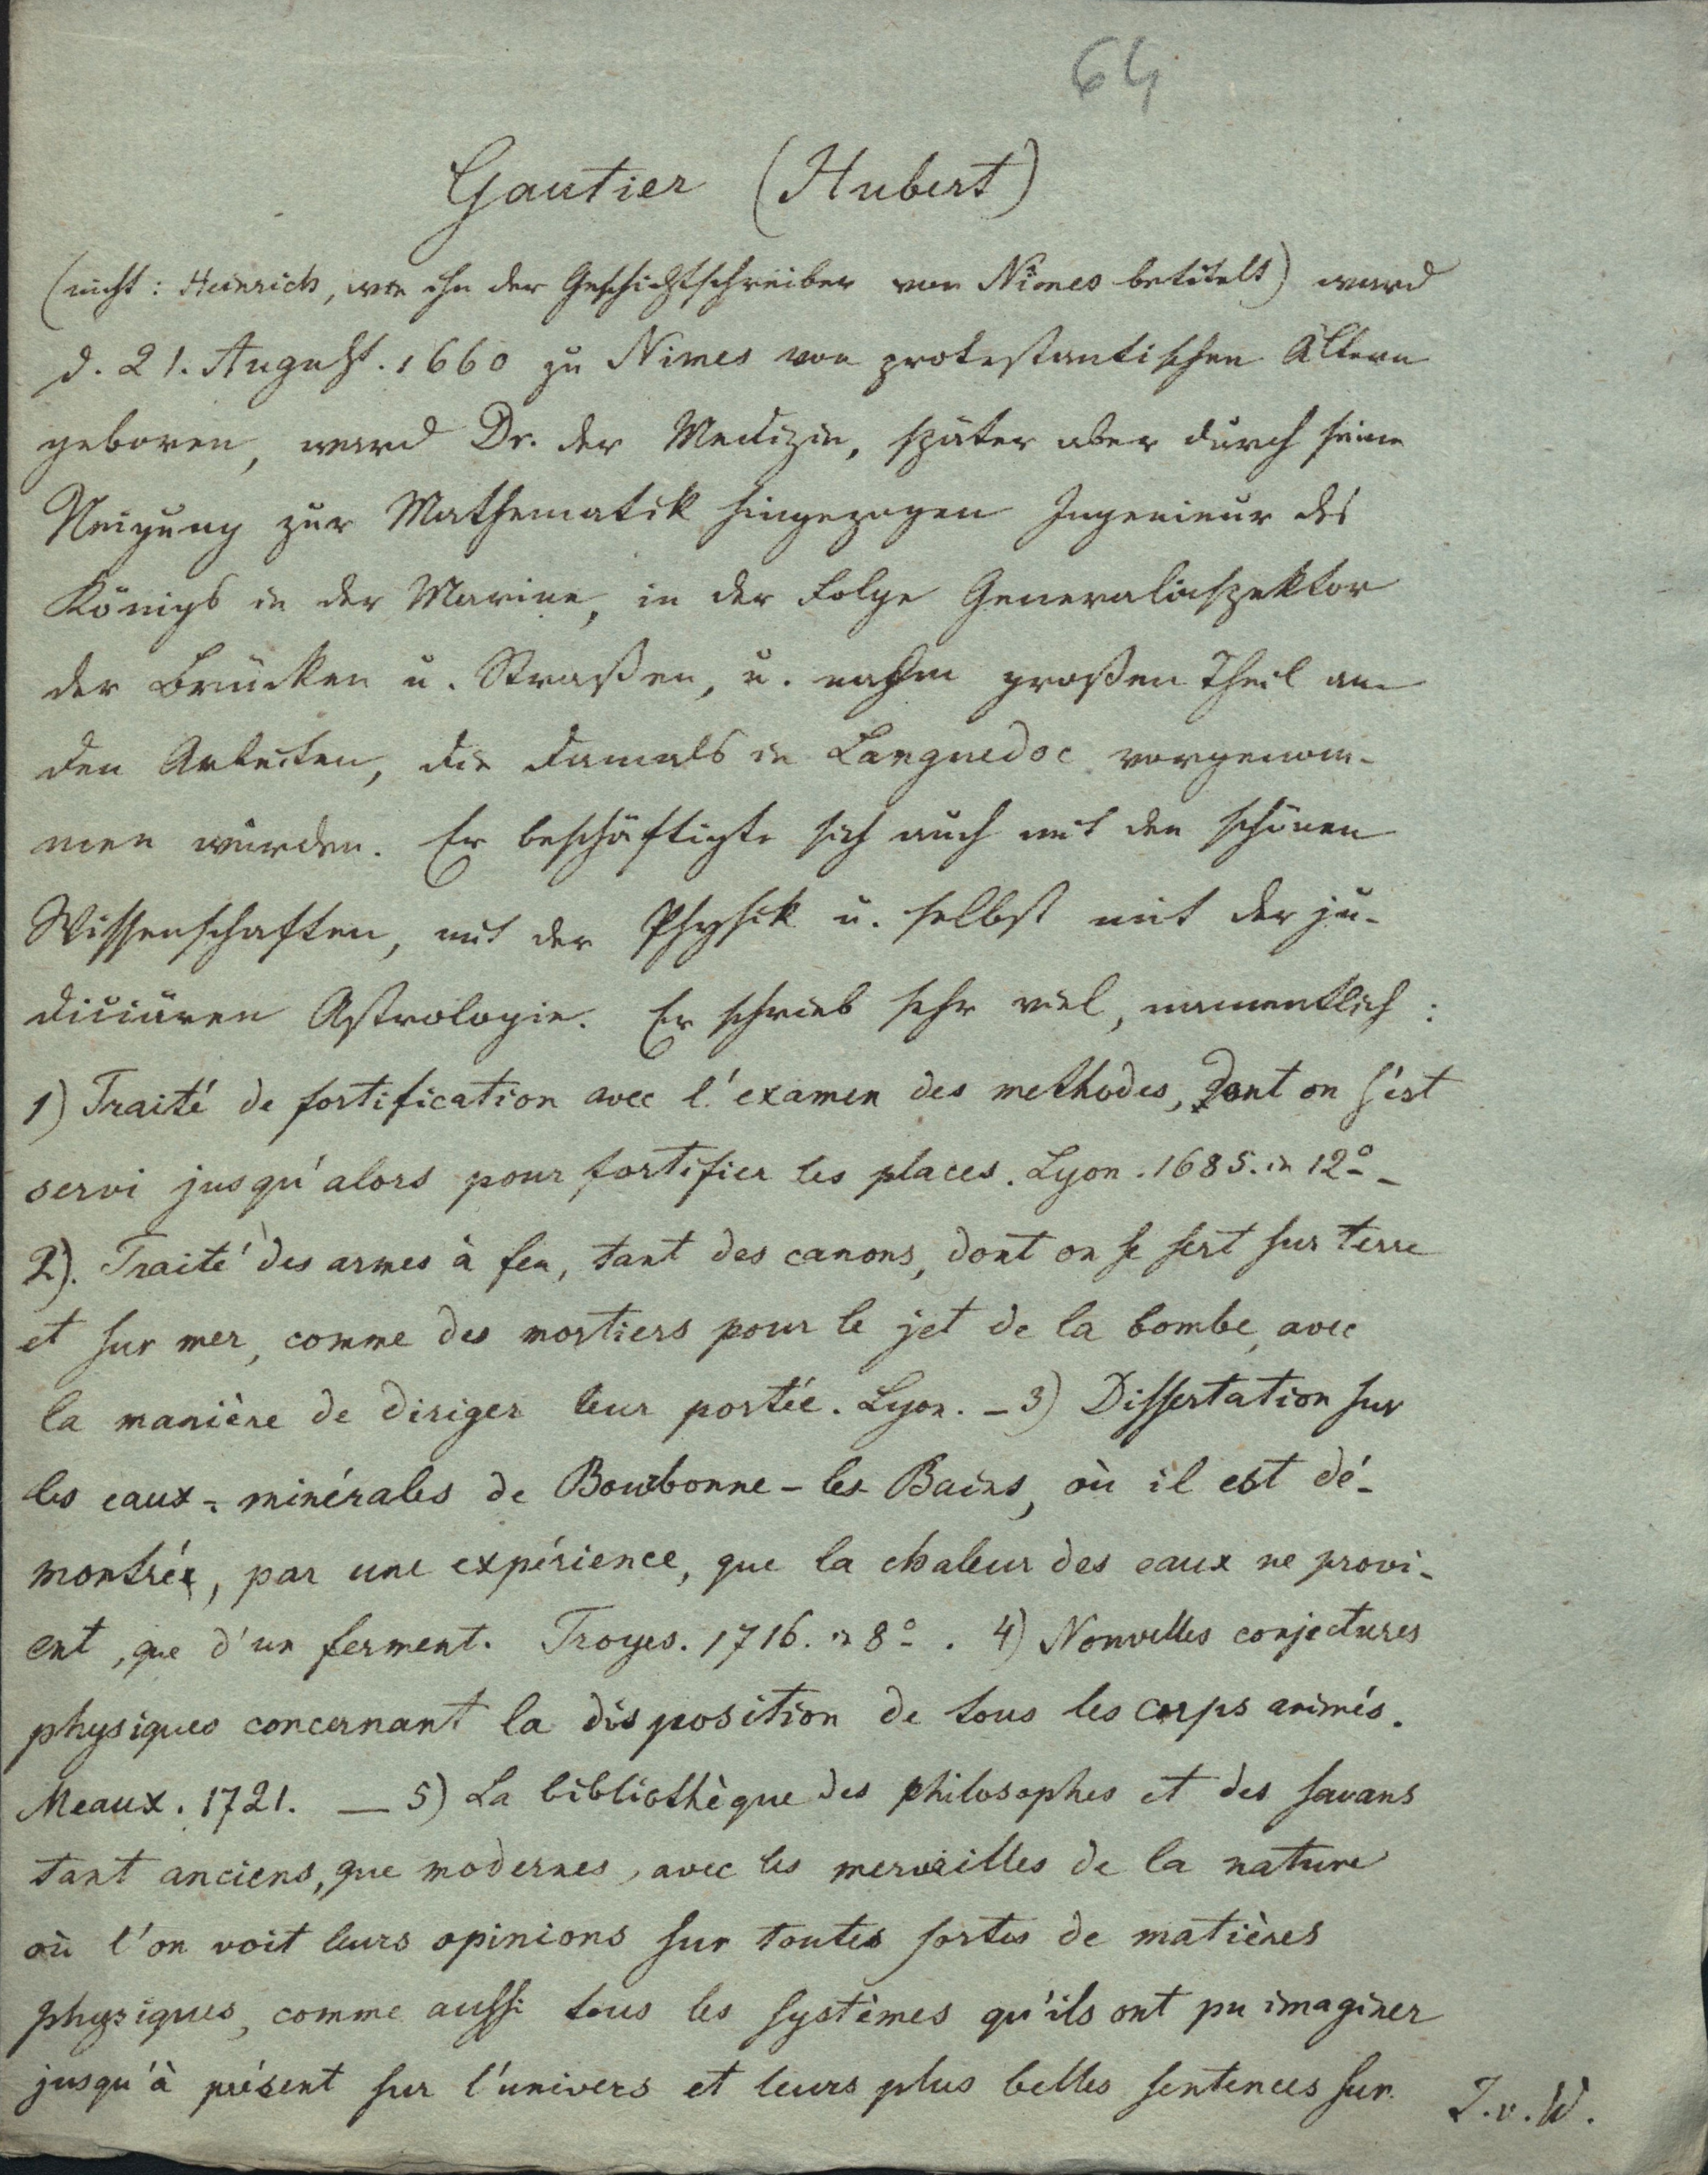 64
Gautier (Hubert)
(nicht: Heinrich, wie ihn der Geschichtschreiber von Nimes betitelt) ward
d. 21. August. 1660 zu Nimes von protestantischen Ältern
geboren, ward Dr. der Medizin, später aber durch seine
Neigung zur Mathematik hingezogen Ingenieur des
Königs in der Marine, in der Folge Generalinspektor
der Brücken u. Straßen, u. nahm großen Theil an
den Arbeiten, die damals in Languedoc vorgenom-
men wurden. Er beschäftigte sich auch mit den schönen
Wissenschaften, mit der Physik u. selbst mit der ju-
diciären Astrologie. Er schrieb sehr viel, namentlich:
1) Traité de fortification avec l'examen des methodes, dont on s'est
servi jusqu'alors pour fortifier les places. Lyon. 1685. in 12º_
2). Traité des armes à feu, tant des canons, dont on se sert sur terre
et sur mer, comme des mortiers pour le jet de la bombe, avec
la manière de diriger leur portée. Lyon. _ 3) Dissertation sur
les eaux-minérales de Bourbonne-les-Bains, où il est dé-
montrée, par une expérience, que la chaleur des eaux ne provi-
ent, que d'un ferment. Troyes. 1716. in 8º. 4) Nouvelles conjectures
physiques concernant la disposition de tous les corps animés.
Meaux. 1721. — 5) La bibliothèque des philosophes et des savans
tant anciens, que modernes, avec les merveilles de la nature
où l'on voit leurs opinions sur toutes sortes de matières
physiques, comme aussi tous les systèmes qu'ils ont pu imaginer
jusqu'à présent sur l'univers et leurs plus belles sentences sur
T.v.W.